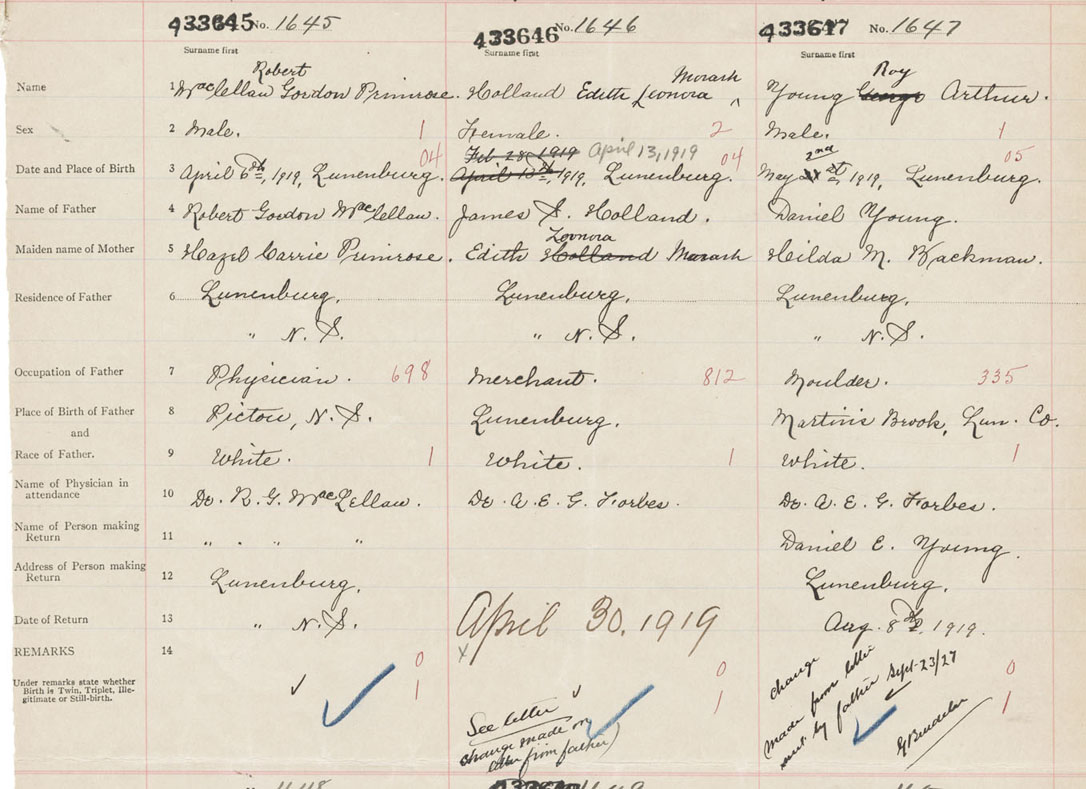 433645 No. 1645 433646 No. 1646 433647 No. 1647
Surname first Surname first Surname first
Robert Morash Roy
Name 1 MacLellan Gordon Primrose. Holland Edith Leonora Young George Arthur.
Sex 2 Male. 1 Female. 2 Male. 1
Feb 28, 1919 April 13, 1919 2nd
Date and Place of Birth 3 April 6th, 1919, Lunenburg. 04 April 13th, 1919, Lunenburg. 04 May st, 1919, Lunenburg. 05
Name of Father 4 Robert Gordon MacLellan. James S. Holland. Daniel Young.
Leonora
Maiden name of Mother 5 Hazel Carrie Primrose. Edith Holland Morash Hilda M. Backman.
Residence of Father 6 Lunenburg, Lunenburg, Lunenburg,
" N.S. " N.S. " N.S.
Occupation of Father 7 Physician. 698 Merchant. 812 Moulder. 335
Place of Birth of Father 8 Pictou, N.S. Lunenburg, Martin's Brook, Lun. Co.
and
Race of Father. 9 White. 1 White. 1 White. 1
Name of Physician in
attendance 10 Dr. R. G. MacLellan. Dr. A. E. G. Forbes. Dr. A. E. G. Forbes.
Name of Person making
Return 11 " " " " Daniel E. Young.
Address of Person making
Return 12 Lunenburg, Lunenburg,
Date of Return 13 " N.S. April 30, 1919 Aug. 8th, 1919.
REMARKS 14 0 x 0 0
Under remarks state whether
Birth is Twin, Triplet, Ille-
gitimate or Still-birth. 1 1 1
See letter
change made on
letter from father)
change
made from letter
sent by father Sept-23/27
1648 1649